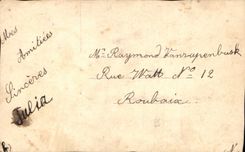 Mes
Amitiées
Sincères
Julia
Mr Raymond Vanrapenbusk
Rue Watt No 12
Roubaix